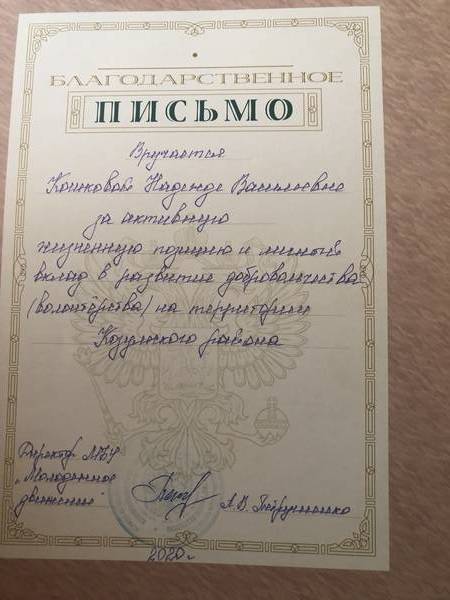 БЛАГОДАРСТВЕННОЕ
ПИСЬМО
Вручается
Надежде Васильевне
за активную
жизненную позицию и личный
вклад в развитие добровольчества
(волонтёрства) на территории
Козульского района
Директор МБУ
"Молодежное
движение"
А.В.
2020г